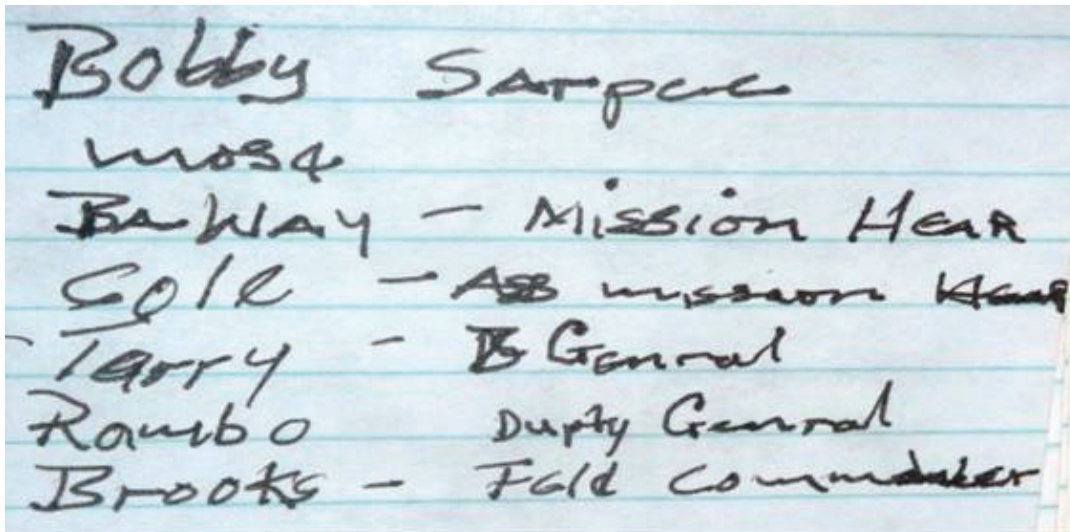 Bobby Sarpee
mose
BaWay - Mission Hear
Cole - Ass mission Hear
- Tarry - B General
Rambo Dupty General
Brooks - Feld Commander